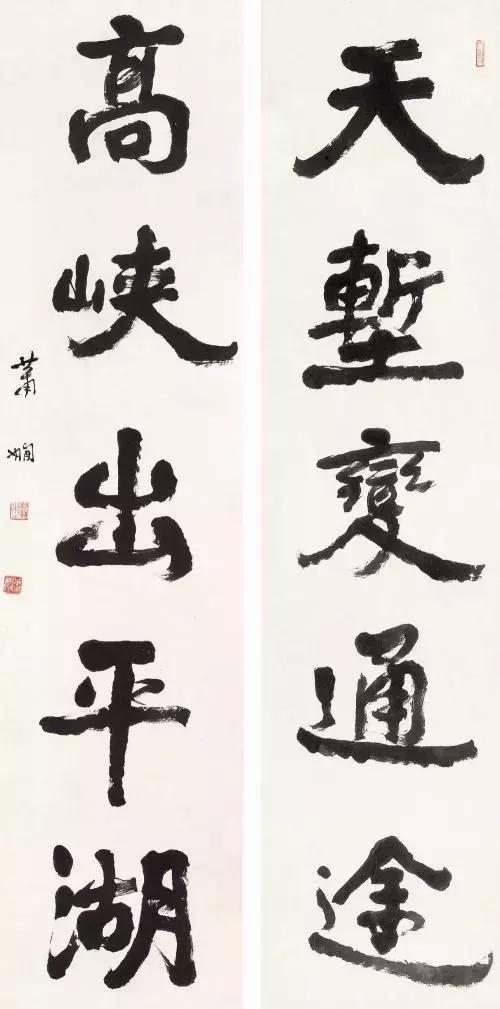 天塹變通途
高峽出平湖
蕭嫻